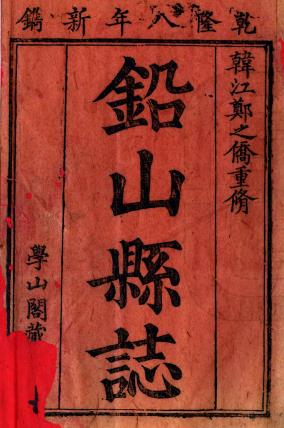 乾隆八年新鐫
韓江鄭之僑重脩
鉛山縣誌
學山閣藏